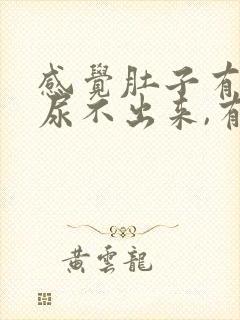 感覺肚子有
尿不出来,有
黄雲龍